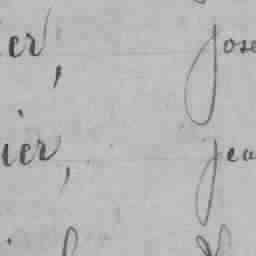 ier, Jose
ier, Jea